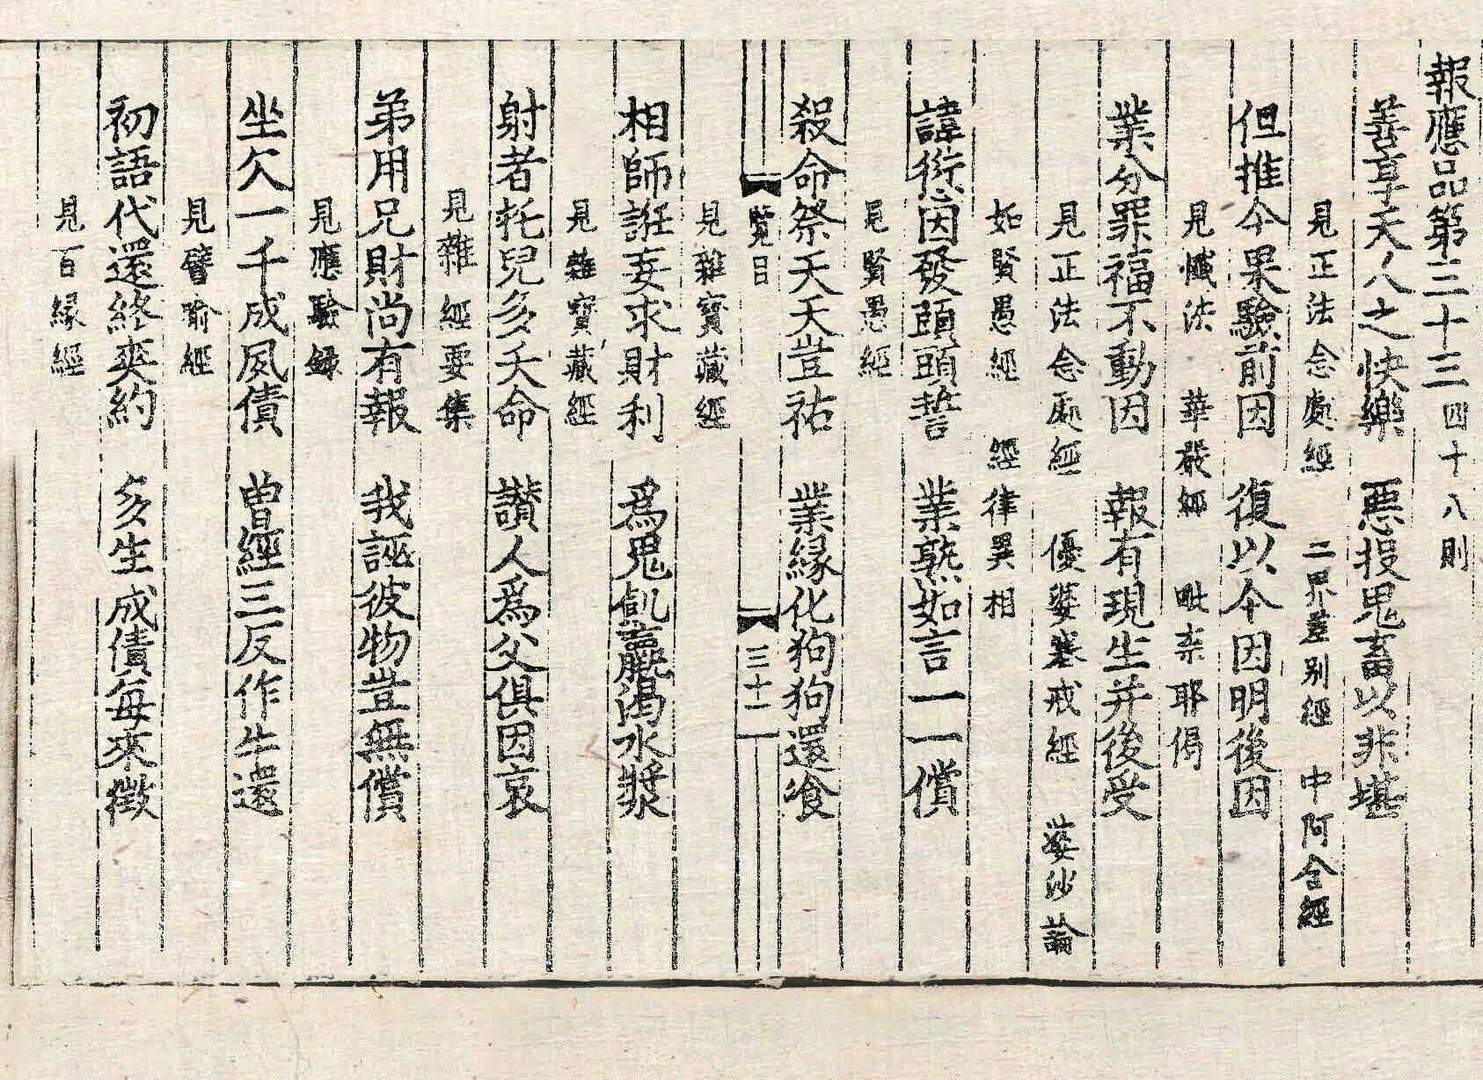 報應品第三十三 四十八則
善享天人之快樂 惡投鬼畜以非堪
見正法念處經 二界差別經 中阿含經
但推今果驗前因 復以今因明後因
見懺法 華嚴經 毗柰耶偈
業分罪福不動因 報有現生并後受
見正法念處經 優婆塞戒經 婆沙論
如賢愚經 經律異相
諱愆因發頭誓 業熟如言一一償
見賢愚經
殺命祭天天豈祐 業緣化狗狗還飡
覽日 三十二
見雜寶藏經
相師誑妄求財利 為鬼飢羸臝渴水漿
見雜寶藏經
射者托兒多夭命 讚人為父俱因哀
見雜經要集
弟用兄財尚有報 我誣彼物豈無償
見應驗録
坐欠一千成夙債 曾經三反作牛還
見譬喻經
初語代還終爽約 多生成債每來徵
見百緣經